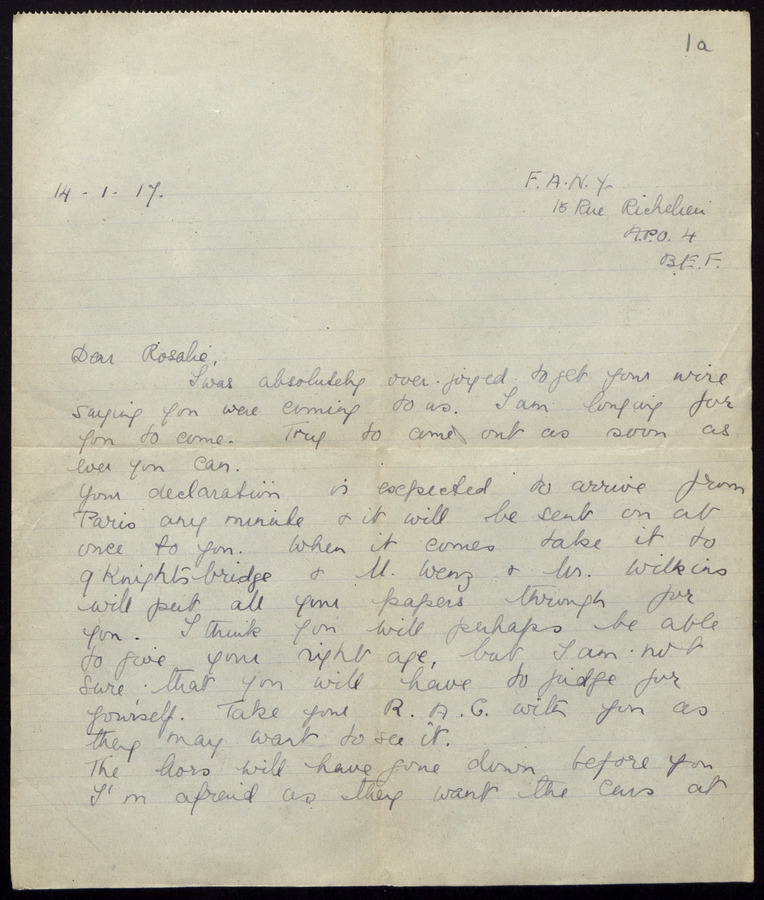 1a
14 - 1 - 17.
F.A.N.Y.
15 Rue Richelieu
A.P.O. 4
B.E.F.
Dear Rosalie,
I was absolutely over-joyed to get your wire
saying you were coming to us. I am longing for
you to come. Try to come out as soon as
ever you can.
Your declaration is expected to arrive from
Paris any minute & it will be sent on at
once to you. When it comes take it to
9 Knightsbridge & M. Wenz & Mr. Wilkins
will put all your papers through for
you. I think you will perhaps be able
to give your right age, but I am not
sure that you will have to judge for
yourself. Take your R.A.C. with you as
they may want to see it.
The will have gone down before you
I'm afraid as they want the cars at